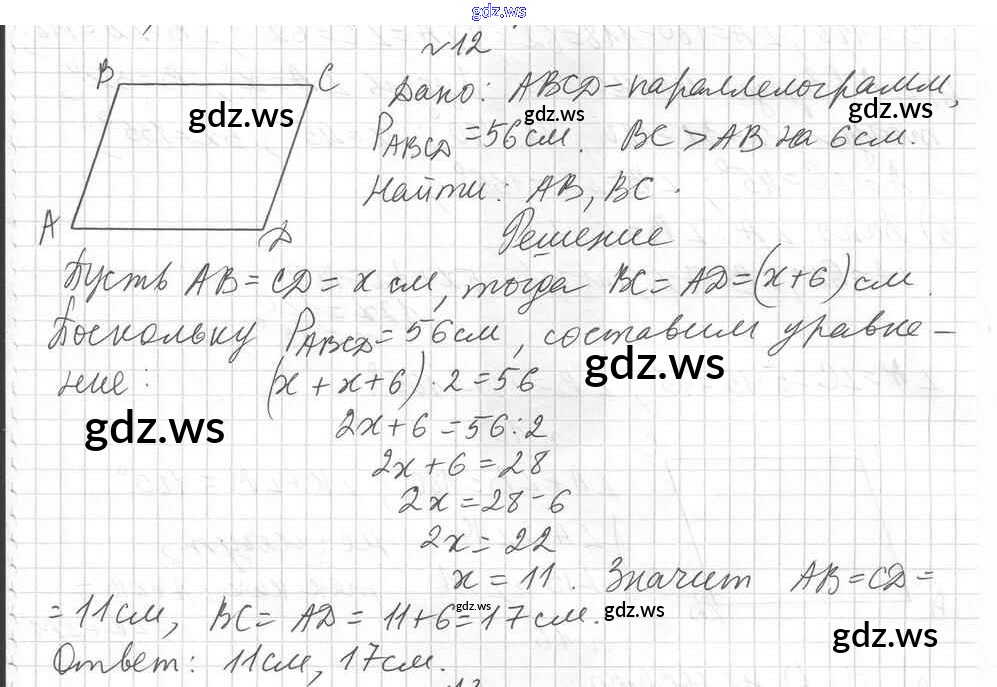 gdz.ws
№12
B C
Дано: ABCD-параллелограмм,
gdz.ws gdz.ws gdz.ws
P_ABCD = 56 см. BC > AB на 6 см.
Найти: AB, BC.
A D
Решение
Пусть AB = CD = x см, тогда BC = AD = (x+6) см.
Поскольку P_ABCD = 56 см, составим уравне-
gdz.ws
ние: (x + x + 6) · 2 = 56
gdz.ws
2x + 6 = 56 : 2
2x + 6 = 28
2x = 28 - 6
2x = 22
x = 11. Значит AB = CD =
= 11 см, BC = AD = 11 + 6 = 17 см.
gdz.ws gdz.ws gdz.ws
Ответ: 11 см, 17 см.